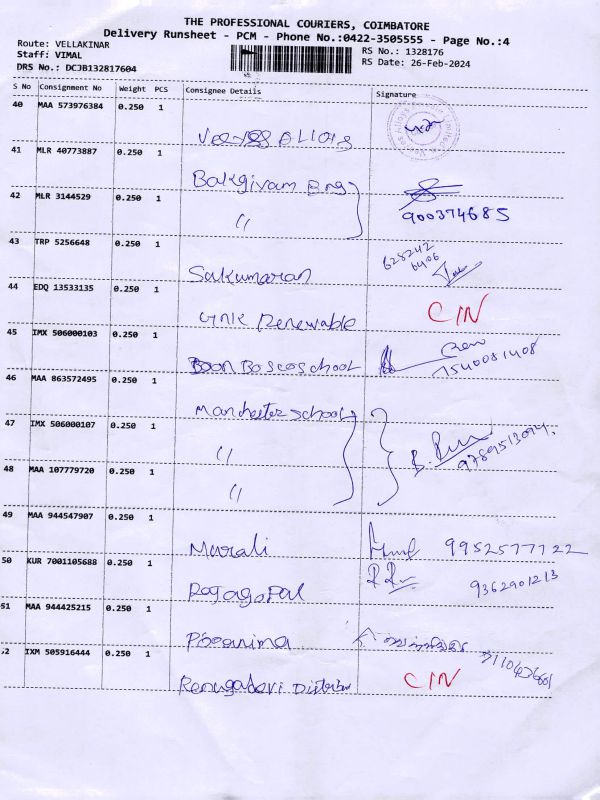 THE PROFESSIONAL COURIERS, COIMBATORE
Delivery Runsheet - PCM - Phone No.:0422-3505555 - Page No.:4
Route: VELLAKINAR
Staff: VIMAL
DRS No.: DCJB132817604
RS No.: 1328176
RS Date: 26-Feb-2024
S No Consignment No Weight PCS Consignee Details Signature
40 MAA 573976384 0.250 1
41 MLR 40773887 0.250 1
Balagivam Eng
42 MLR 3144529 0.250 1
〃 900374685
43 TRP 5256648 0.250 1
Sukumaran 628242 6406
44 EDQ 13533135 0.250 1
Renewable CIN
45 IMX 506000103 0.250 1
Boon Bosco school 7540081408
46 MAA 863572495 0.250 1
Manchester school
47 IMX 506000107 0.250 1
〃 9789513094.
48 MAA 107779720 0.250 1
〃
49 MAA 944547907 0.250 1
Murali 9952577722
50 KUR 7001105688 0.250 1
Ragagopal 9362901213
51 MAA 944425215 0.250 1
Poornima
52 IXM 505916444 0.250 1
Renugadevi CIN